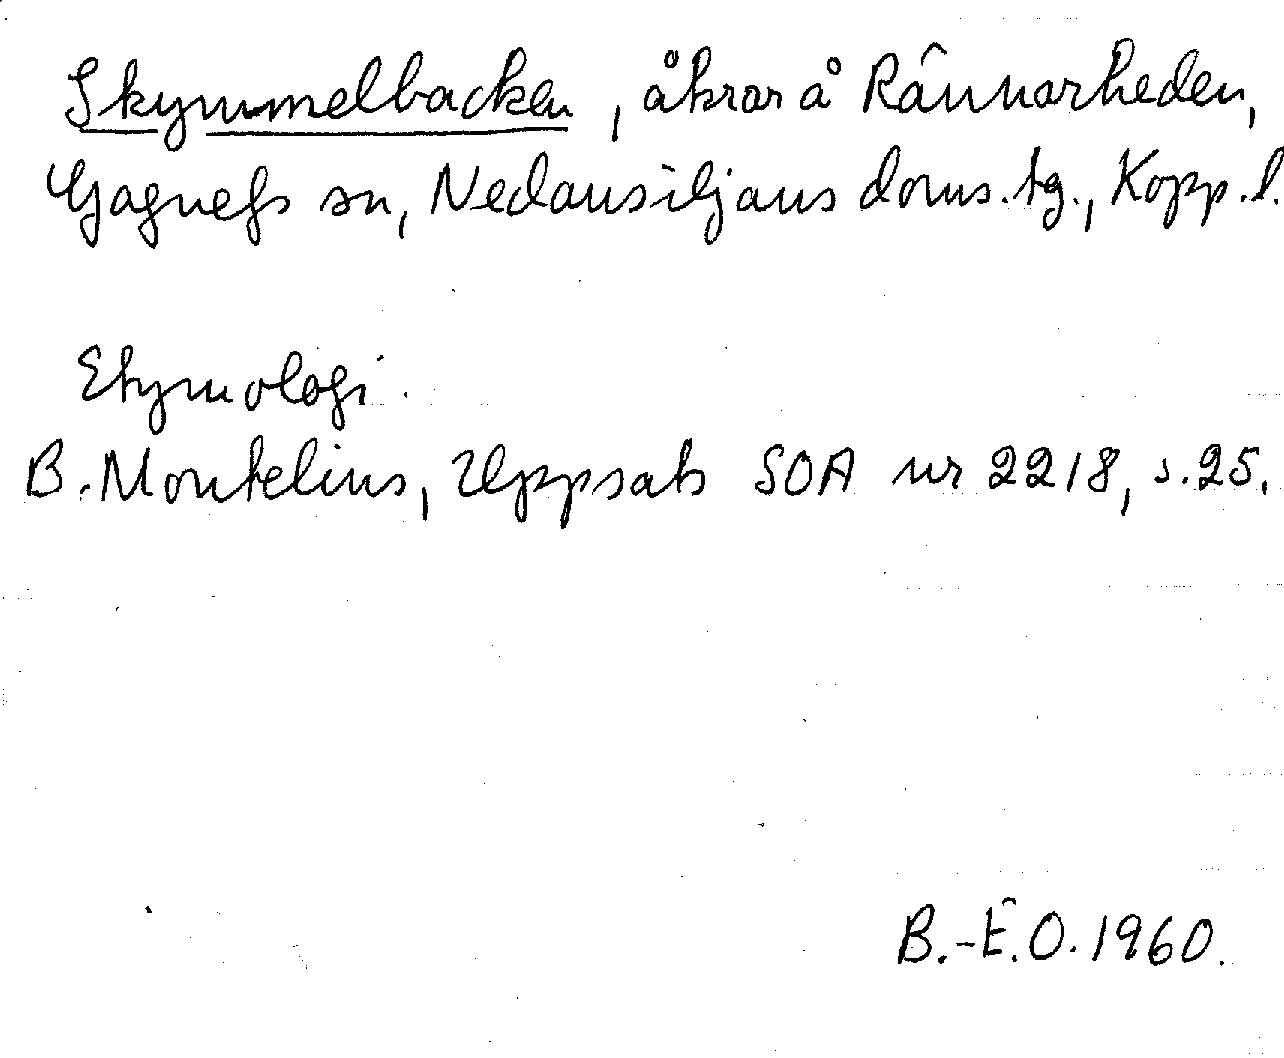 Skymmelbacken, åkrar å Rännarheden,
Gagnefs sn, Nedansiljans doms.tg., Kopp.l.
Etymologi.
B. Montelius, Uppsats SOA nr 2218, s.25.
B.-E.O. 1960.